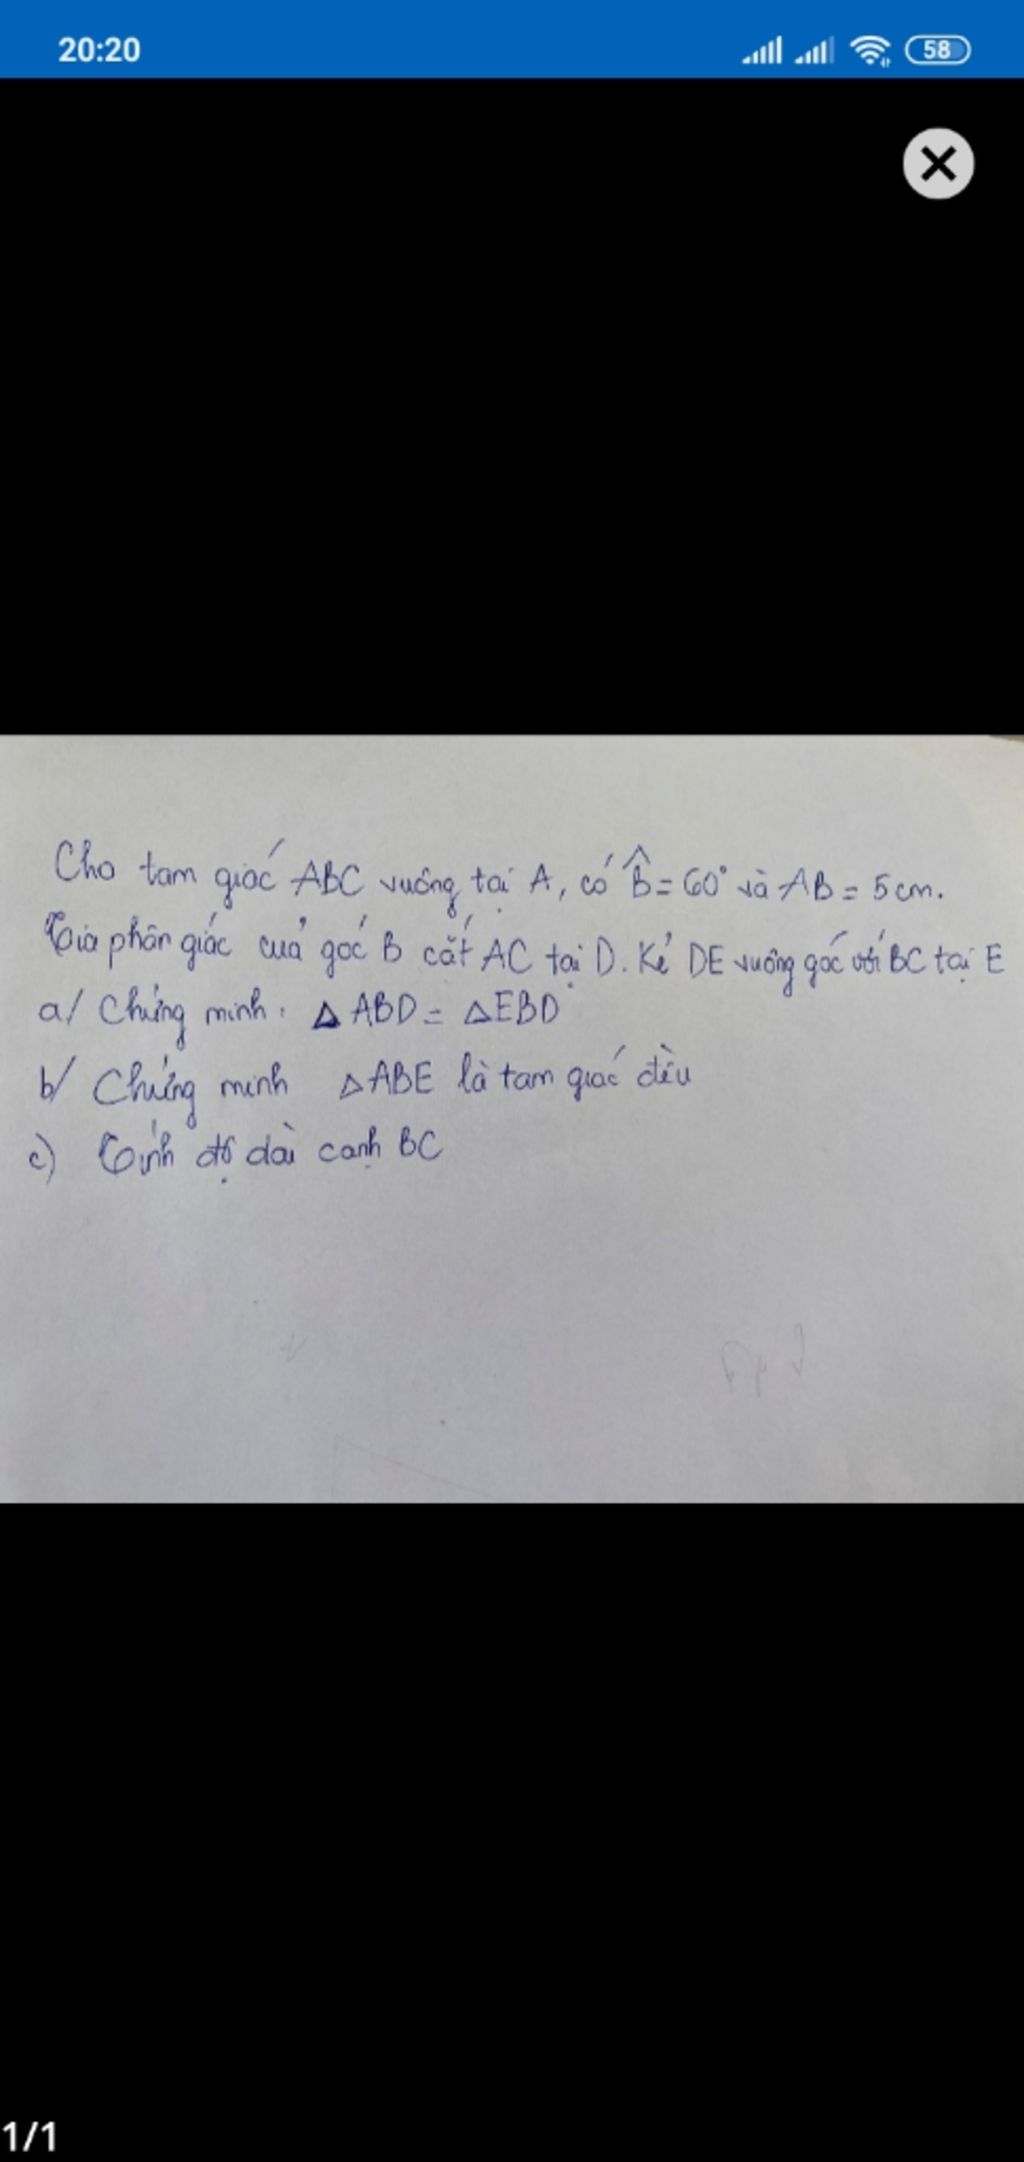 20:20
58
Cho tam giác ABC vuông tại A, có B̂ = 60° và AB = 5cm.
Tia phân giác của góc B cắt AC tại D. Kẻ DE vuông góc với BC tại E
a/ Chứng minh: ΔABD = ΔEBD
b/ Chứng minh ΔABE là tam giác đều
c) Tính độ dài cạnh BC
1/1